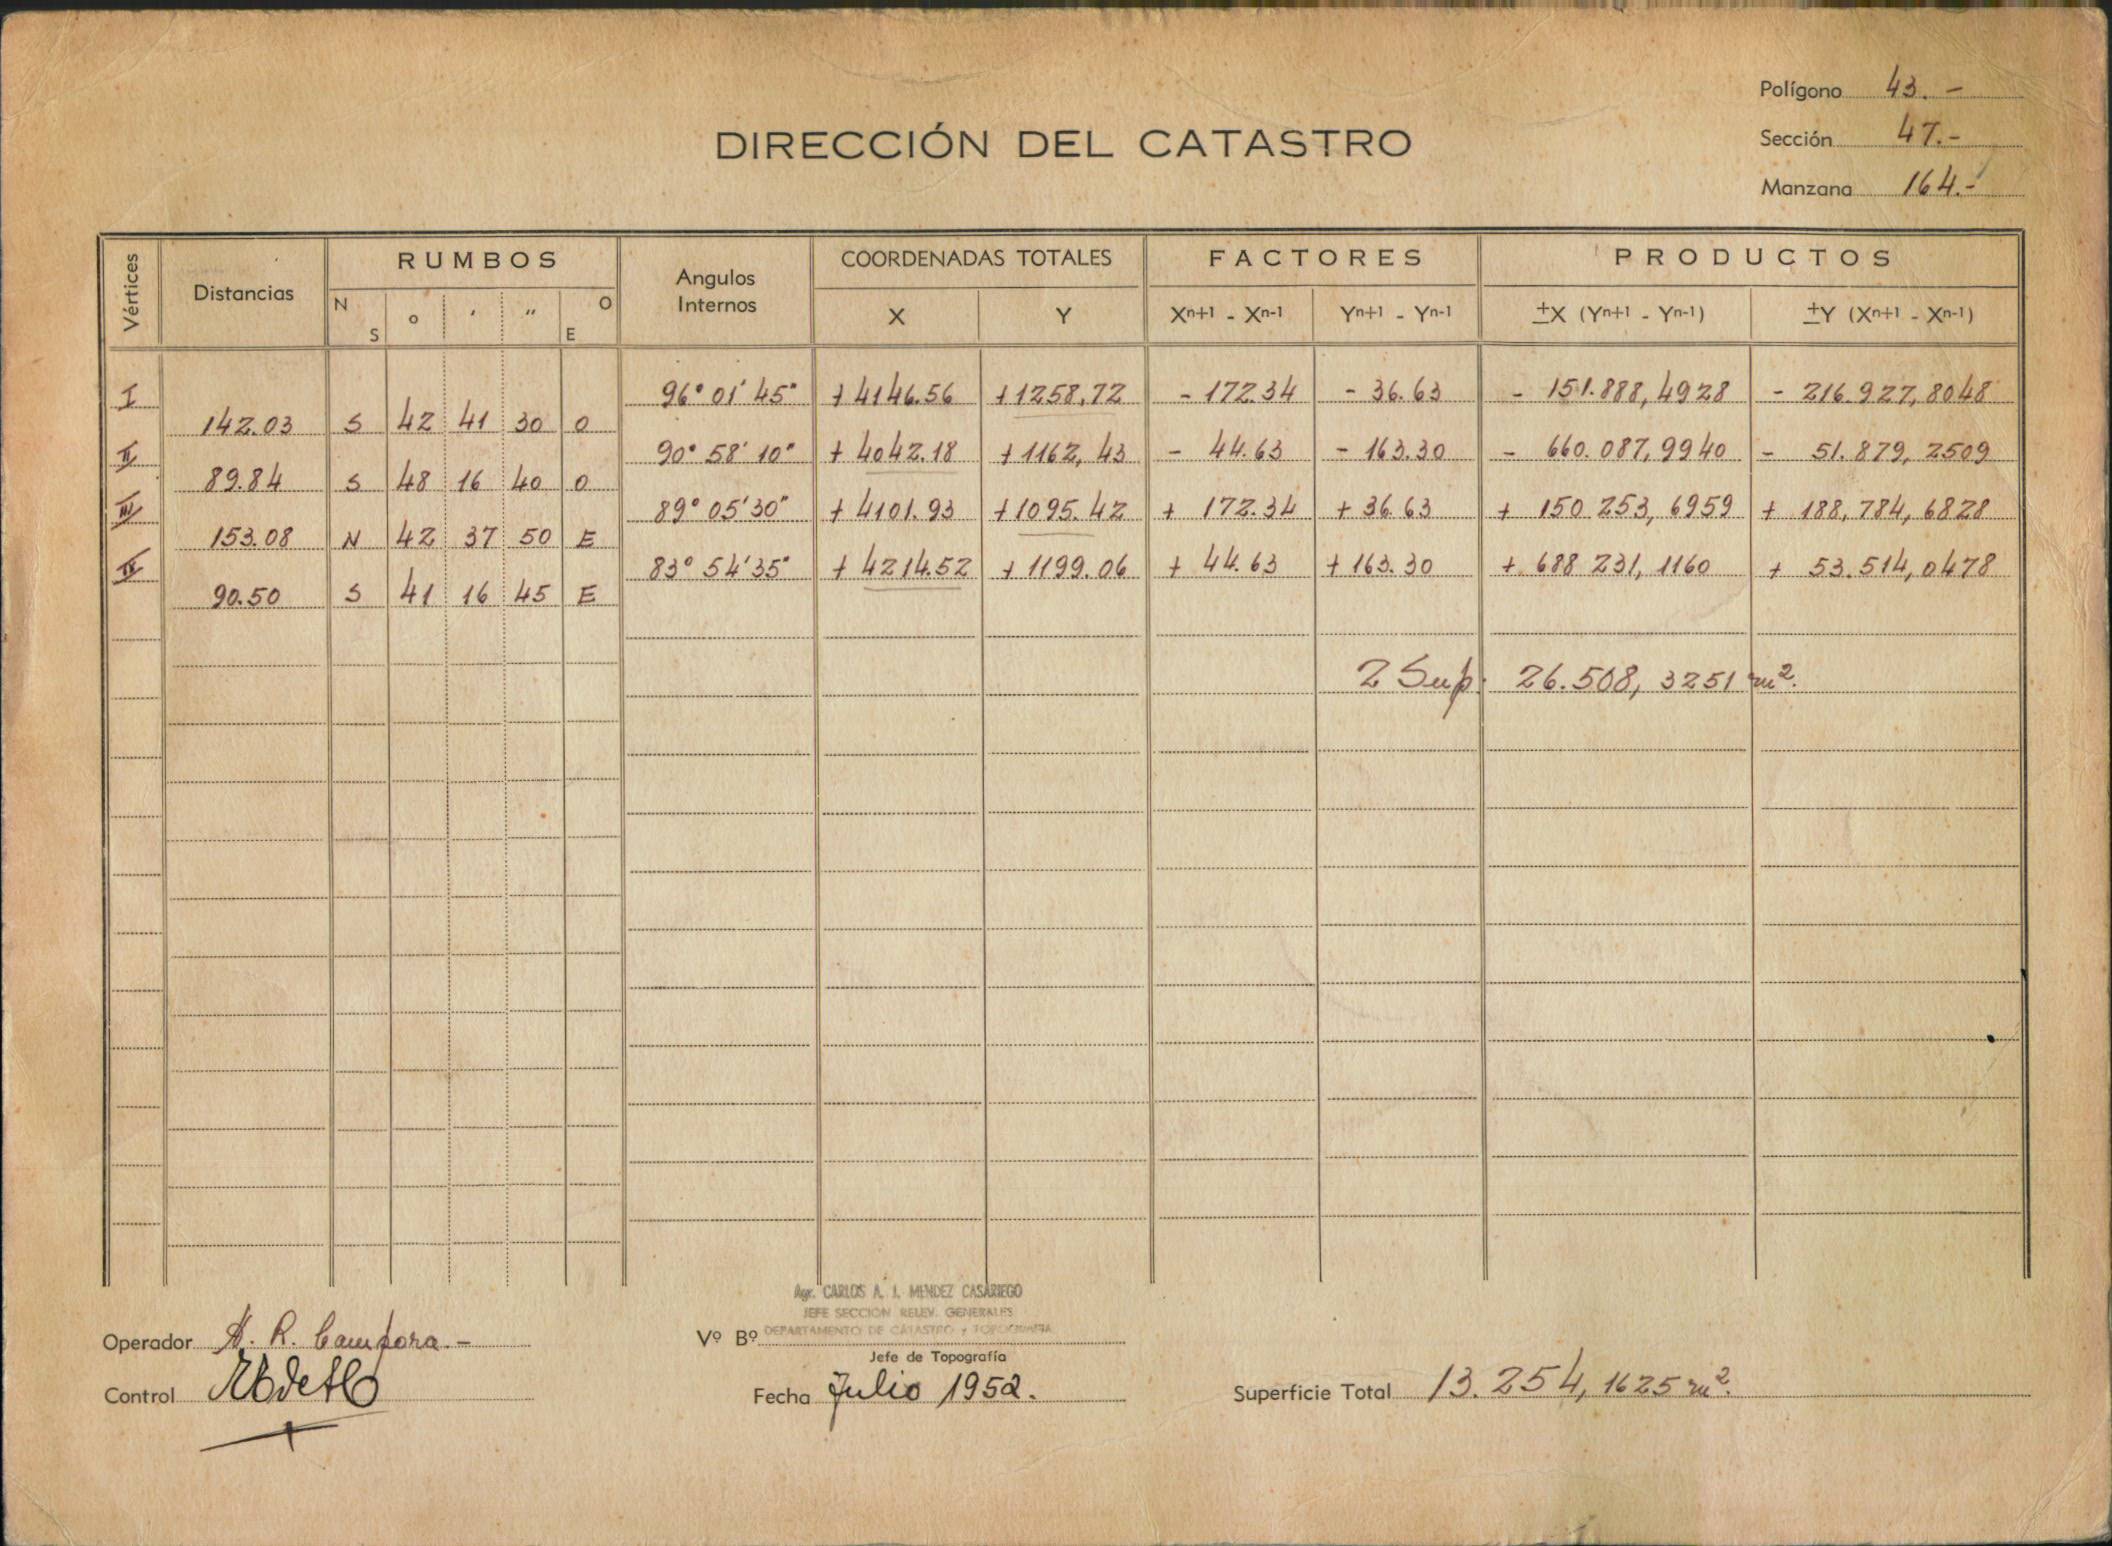 Polígono 43.-
DIRECCIÓN DEL CATASTRO
Sección 47.-
Manzana 164.-
Vértices Distancias RUMBOS Angulos Internos COORDENADAS TOTALES FACTORES PRODUCTOS
N S ° ′ ″ O E X Y Xⁿ⁺¹ - Xⁿ⁻¹ Yⁿ⁺¹ - Yⁿ⁻¹ ±X (Yⁿ⁺¹ - Yⁿ⁻¹) ±Y (Xⁿ⁺¹ - Xⁿ⁻¹)
I 96° 01' 45" + 4146.56 + 1258,72 - 172.34 - 36.63 - 151.888,4928 - 216.927,8048
142.03 S 42 41 30 O
II 90° 58' 10" + 4042.18 + 1162,43 - 44.63 - 163.30 - 660.087,9940 - 51.879,2509
89.84 S 48 16 40 O
III 89° 05' 30" + 4101.93 + 1095.42 + 172.34 + 36.63 + 150 253,6959 + 188,784,6828
153.08 N 42 37 50 E
IV 83° 54' 35" + 4214.52 + 1199.06 + 44.63 + 163.30 + 688 231,1160 + 53.514,0478
90.50 S 41 16 45 E
2 Sup: 26.508,3251 m².
Agr. CARLOS A. J. MENDEZ CASARIEGO
JEFE SECCION RELEV. GENERALES
DEPARTAMENTO DE CATASTRO y TOPOGRAFIA
Operador A. R. Campora.- Vº Bº
Jefe de Topografía
Control Fecha Julio 1952. Superficie Total 13.254,1625 m².